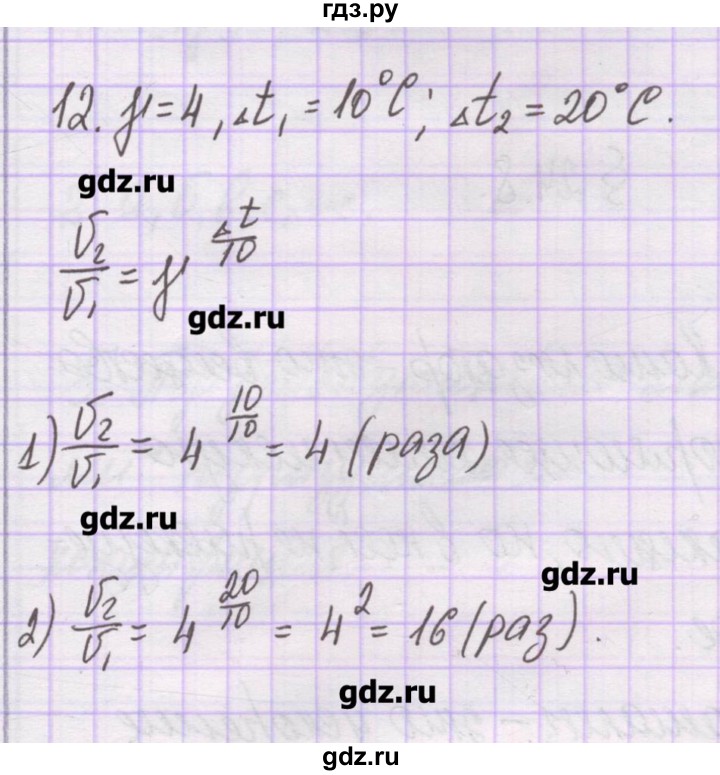 гдз.ру
12. γ = 4, Δt₁ = 10°C; Δt₂ = 20°C.
gdz.ru
V₂/V₁ = γ^(Δt/10)
gdz.ru
1) V₂/V₁ = 4^(10/10) = 4 (раза)
gdz.ru
gdz.ru
2) V₂/V₁ = 4^(20/10) = 4² = 16 (раз).
gdz.ru
gdz.ru